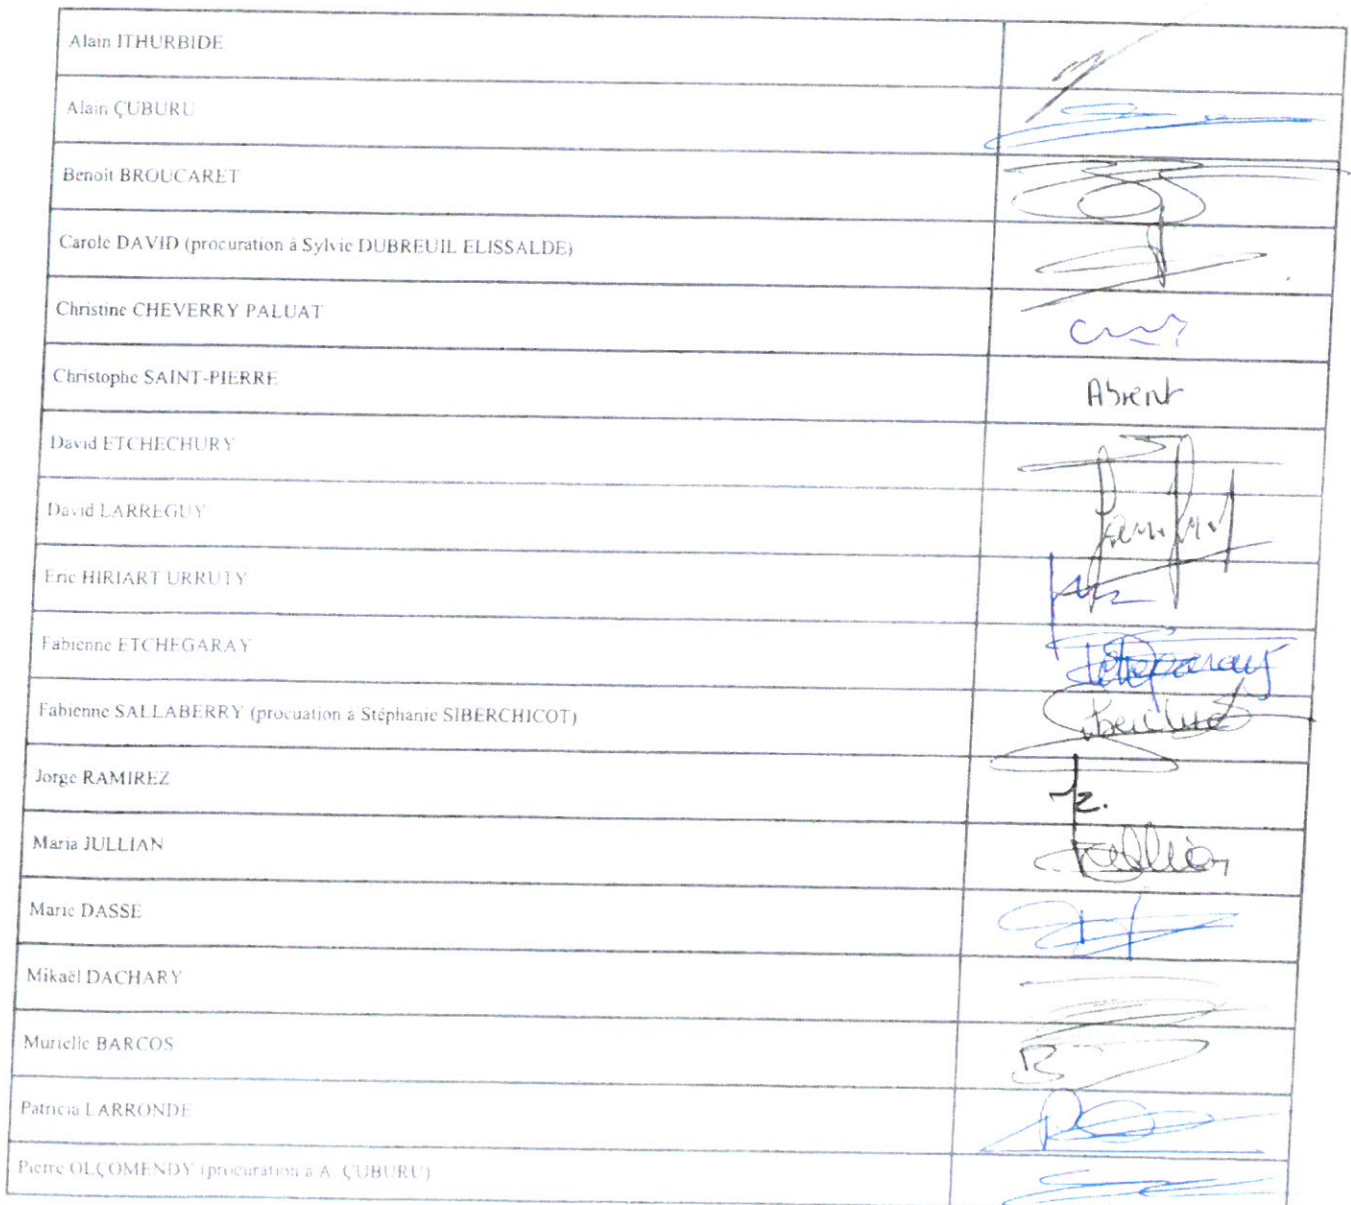 Alain ITHURBIDE
Alain ÇUBURU
Benoit BROUCARET
Carole DAVID (procuration à Sylvie DUBREUIL ELISSALDE)
Christine CHEVERRY PALUAT
Christophe SAINT-PIERRE Absent
David ETCHECHURY
David LARREGUY
Eric HIRIART URRUTY
Fabienne ETCHEGARAY
Fabienne SALLABERRY (procuation à Stéphanie SIBERCHICOT)
Jorge RAMIREZ
Maria JULLIAN
Marie DASSÉ
Mikaël DACHARY
Murielle BARCOS
Patricia LARRONDE
Pierre OLÇOMENDY (procuration à A. ÇUBURU)